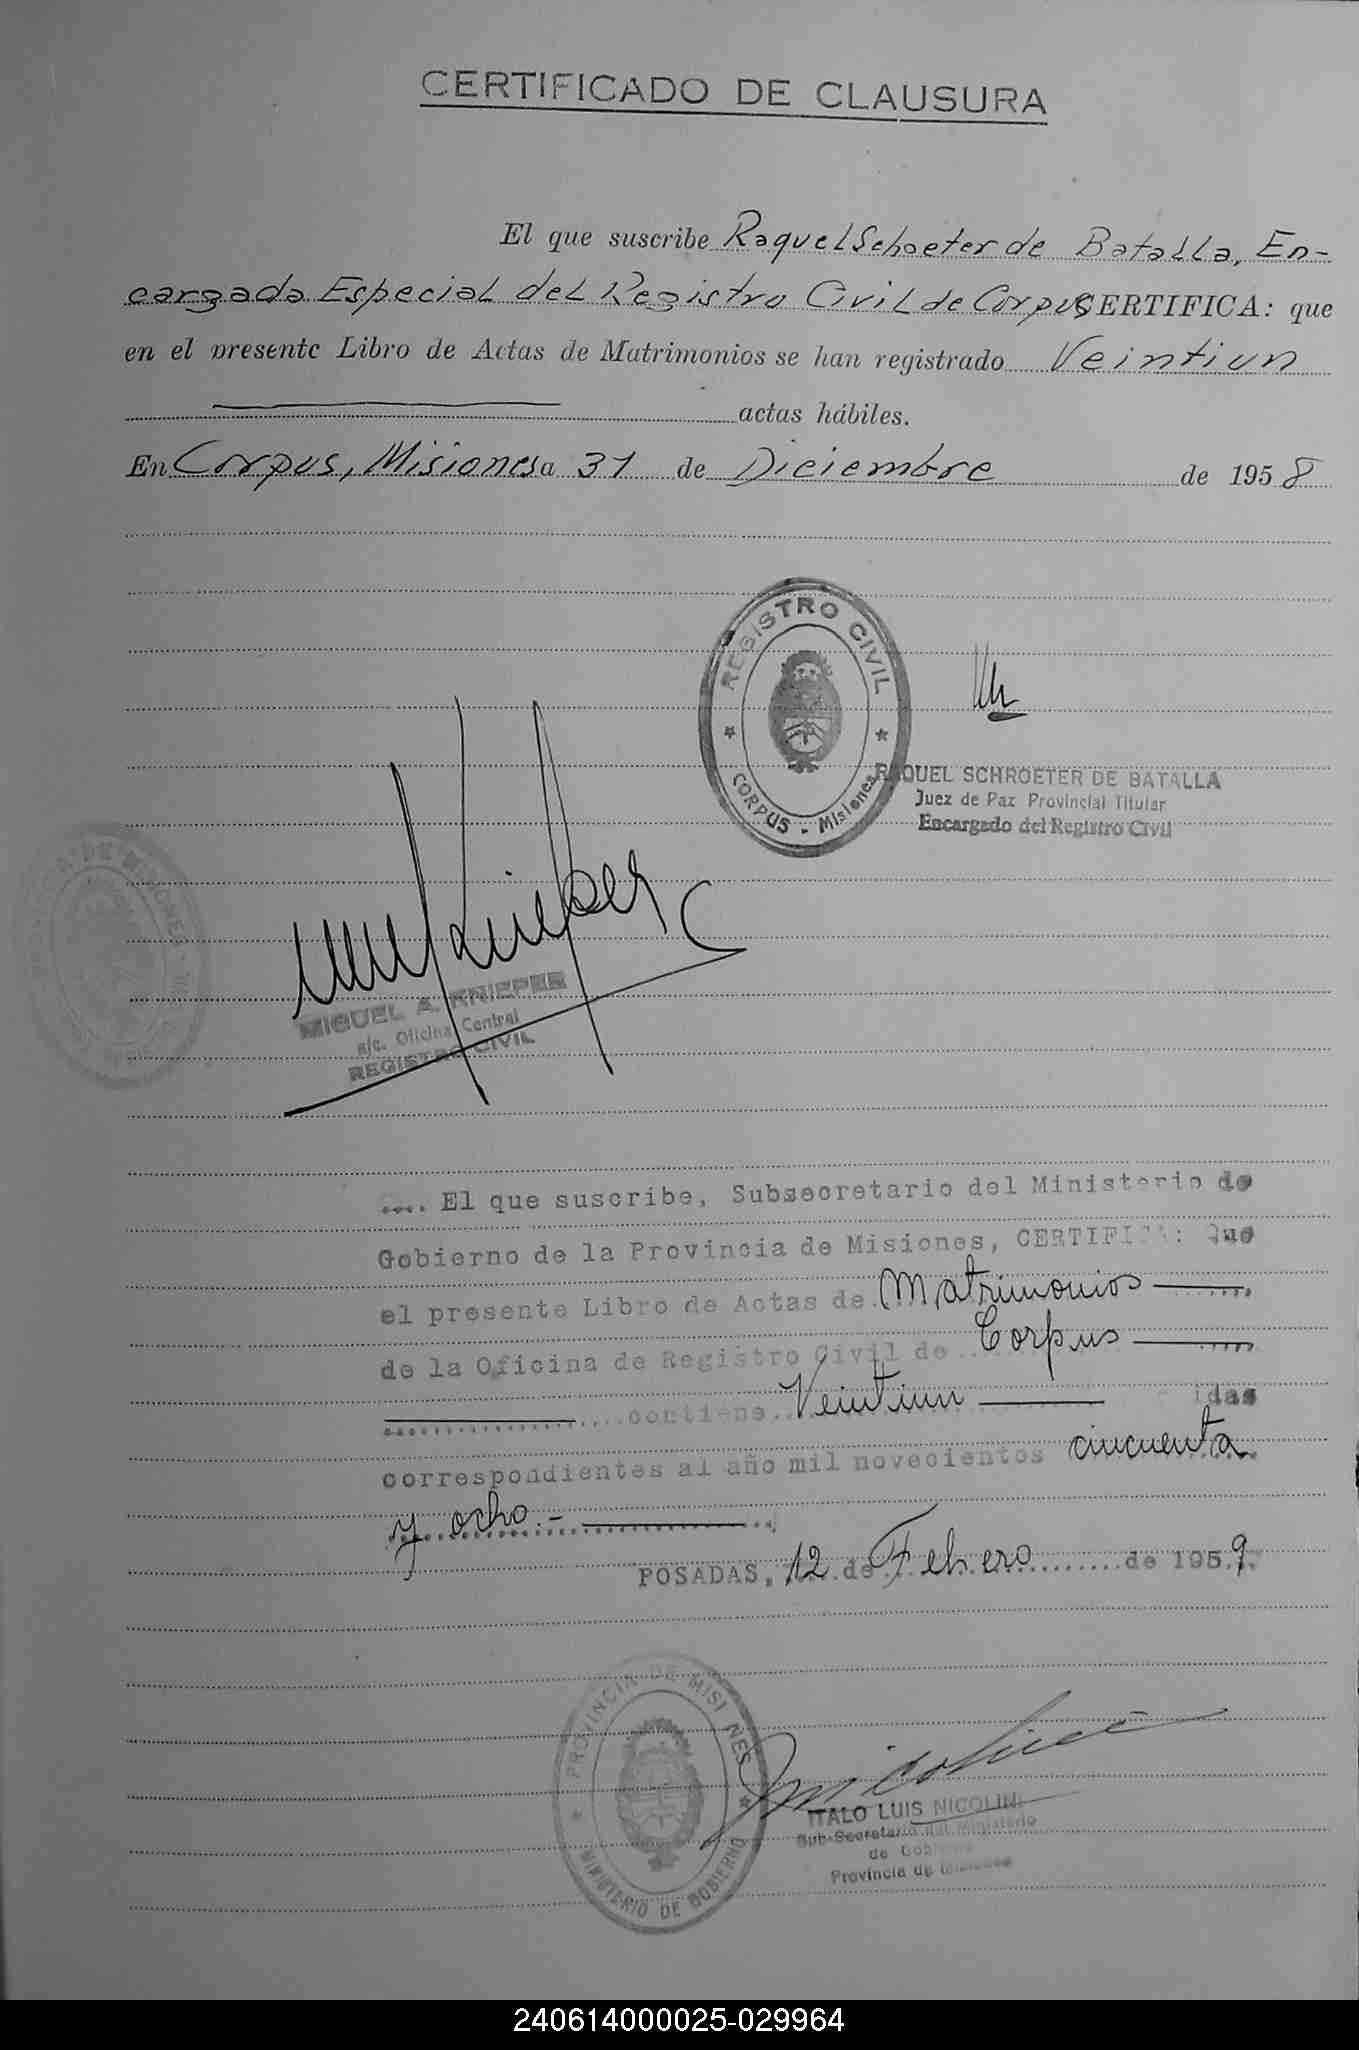 CERTIFICADO DE CLAUSURA
El que suscribe Raquel Schoeter de Batalla, En-
cargada Especial del Registro Civil de Corpus CERTIFICA: que
en el presente Libro de Actas de Matrimonios se han registrado Veintiun
actas hábiles.
En Corpus, Misiones a 31 de Diciembre de 1958
REGISTRO CIVIL
CORPUS - Misiones
RAQUEL SCHROETER DE BATALLA
Juez de Paz Provincial Titular
Encargado del Registro Civil
MIGUEL A. KNIEPER
a/c. Oficina Central
REGISTRO CIVIL
.... El que suscribe, Subsecretario del Ministerio de
Gobierno de la Provincia de Misiones, CERTIFICA: Que
el presente Libro de Actas de Matrimonios
de la Oficina de Registro Civil de Corpus
contiene Veintiun
correspondientes al año mil novecientos cincuenta
y ocho.-
POSADAS, 12 de Febrero de 1959.
PROVINCIA DE MISIONES
MINISTERIO DE GOBIERNO
ITALO LUIS NICOLINI
Sub-Secretario del Ministerio
de Gobierno
Provincia de Misiones
240614000025-029964